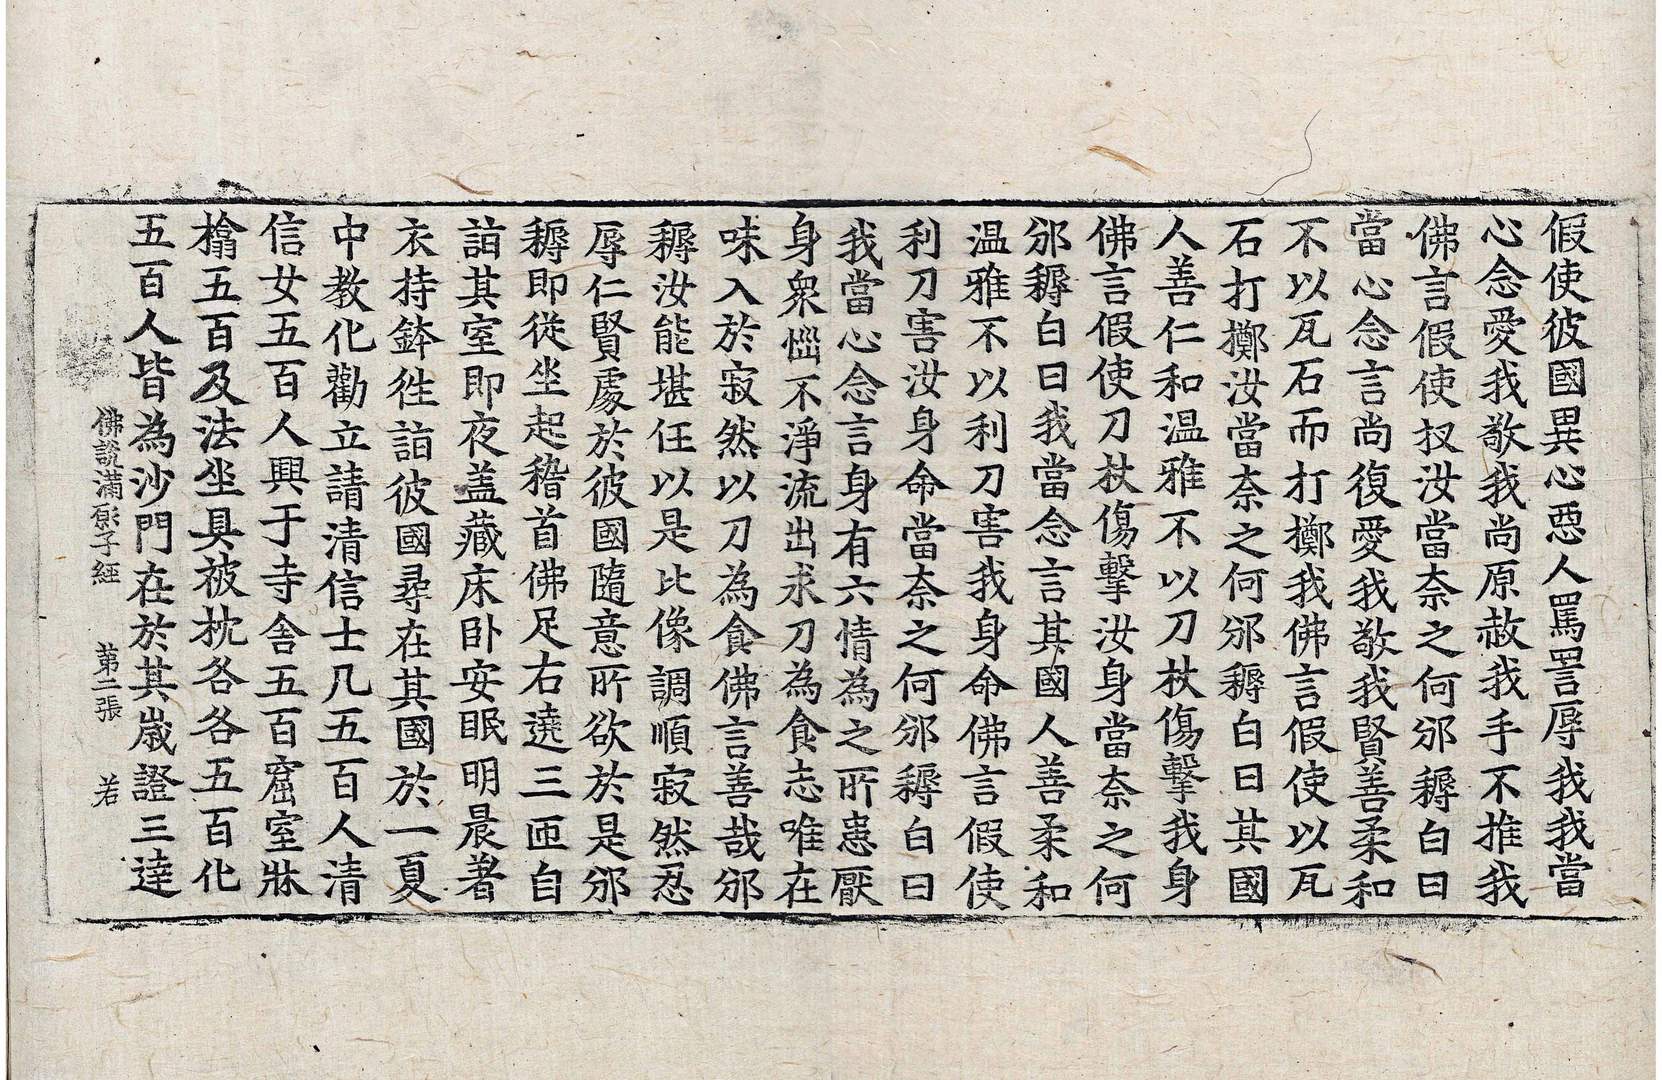 假使彼國異心惡人罵詈辱我我當
心念愛我敬我尚原赦我手不推我
佛言假使扠汝當奈之何邠耨白曰
當心念言尚復愛我敬我賢善柔和
不以瓦石而打擲我佛言假使以瓦
石打擲汝當奈之何邠耨白曰其國
人善仁和温雅不以刀杖傷擊我身
佛言假使刀杖傷擊汝身當奈之何
邠耨白曰我當念言其國人善柔和
温雅不以利刀害我身命佛言假使
利刀害汝身命當奈之何邠耨白曰
我當心念言身有六情為之所患厭
身衆惱不淨流出求刀為食志唯在
味入於寂然以刀為食佛言善哉邠
耨汝能堪任以是比像調順寂然忍
辱仁賢處於彼國隨意所欲於是邠
耨即從坐起稽首佛足右遶三匝自
詣其室即夜盖藏床卧安眠明晨著
衣持鉢徃詣彼國尋在其國於一夏
中教化勸立請清信士凡五百人清
信女五百人興于寺舍五百窟室牀
橋五百及法坐具被枕各各五百化
五百人皆為沙門在於其歲證三達
佛說滿願子經 第二張 若